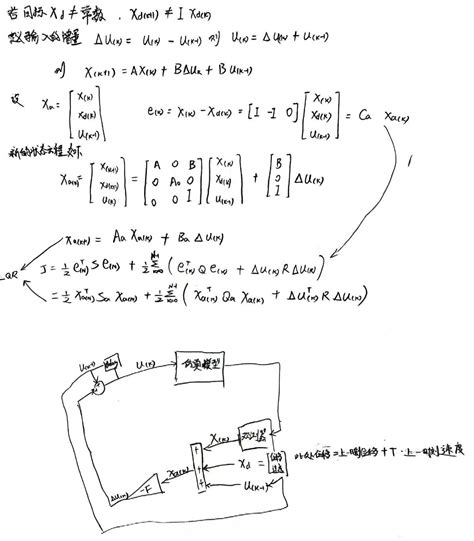 若目标 Xd ≠ 常数 . Xd(k+1) ≠ I Xd(k)
输入的增量 ΔU(k) = U(k) - U(k-1) 则 U(k) = ΔU(k) + U(k-1)
则 X(k+1) = AX(k) + BΔUk + BU(k-1)
设 Xa = [X(k) Xd(k) U(k-1)] e(k) = X(k) - Xd(k) = [I -I 0] [X(k) Xd(k) U(k-1)] = Ca Xa(k)
新的状态方程如下
Xa(k+1) = [X(k+1) Xd(k+1) U(k)] = [A 0 B 0 AD 0 0 0 I] [X(k) Xd(k) U(k-1)] + [B 0 I] ΔU(k)
Xa(k+1) = Aa Xa(k) + Ba ΔU(k)
QR
J = 1/2 e(N)ᵀ S e(N) + 1/2 Σ (e(k)ᵀ Q e(k) + ΔU(k)ᵀ R ΔU(k))
= 1/2 Xa(N)ᵀ Sa Xa(N) + 1/2 Σ (Xa(k)ᵀ Qa Xa(k) + ΔU(k)ᵀ R ΔU(k))
U(k-1)
U(k)
仿真模型
X(k)
Xd =
U(k-1)
Xa(k)
-F
ΔU(k)
此处位移=上一时刻位移 + T · 上一时刻速度